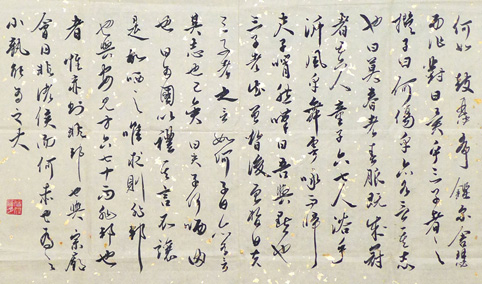 何如鼓瑟希鏗尔舍瑟
而作對曰異乎三子者之
撰子曰何傷乎亦各言其志
也曰莫春者春服既成冠
者五六人童子六七人浴乎
沂風乎舞雩咏而歸
夫子喟然嘆曰吾與點也
三子者出曾皙後曾皙曰夫
三子者之言如何子曰亦各言
其志也已矣曰夫子何哂由
也曰為國以禮其言不讓
是故哂之唯求則非邦
也與安見方六七十而非邦也
者惟赤則非邦也與宗廟
會同非諸侯而何赤也為之
小孰能為之大